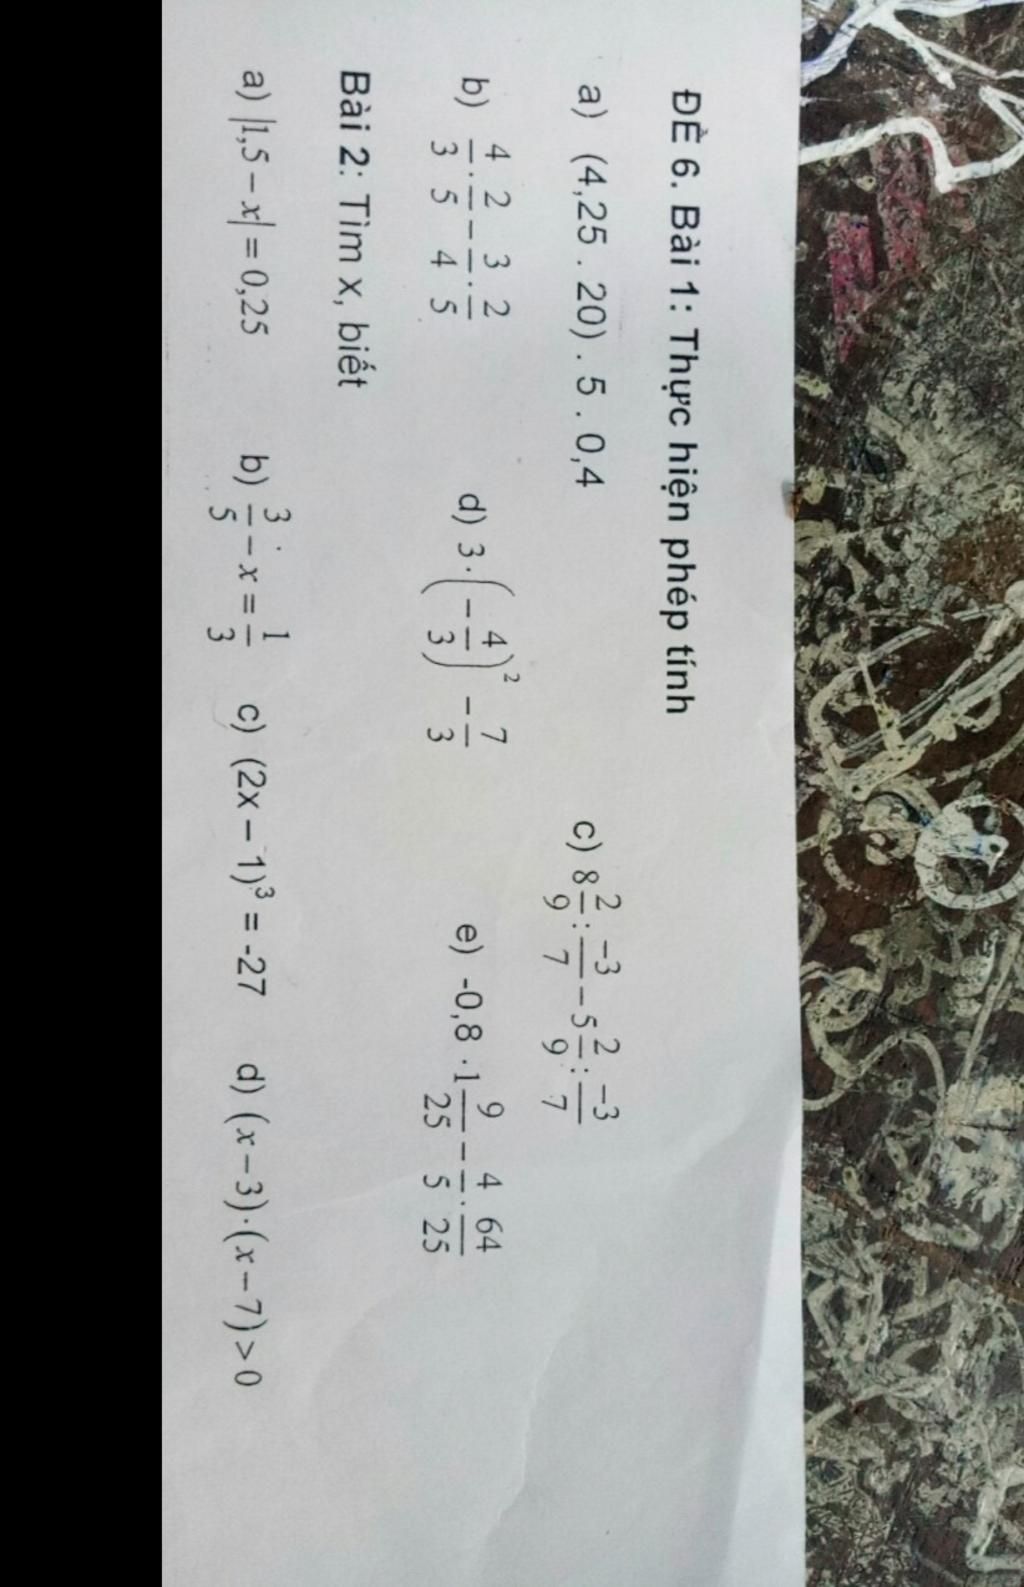 ĐỀ 6. Bài 1: Thực hiện phép tính
a) (4,25 . 20) . 5 . 0,4 c) 8 2/9 : -3/7 - 5 2/9 : -3/7
b) 4/3 . 2/5 - 3/4 . 2/5 d) 3 . (-4/3)² - 7/3 e) -0,8 . 1 9/25 - 4/5 . 64/25
Bài 2: Tìm x, biết
a) |1,5 - x| = 0,25 b) 3/5 - x = 1/3 c) (2x – 1)³ = -27 d) (x-3).(x-7)>0